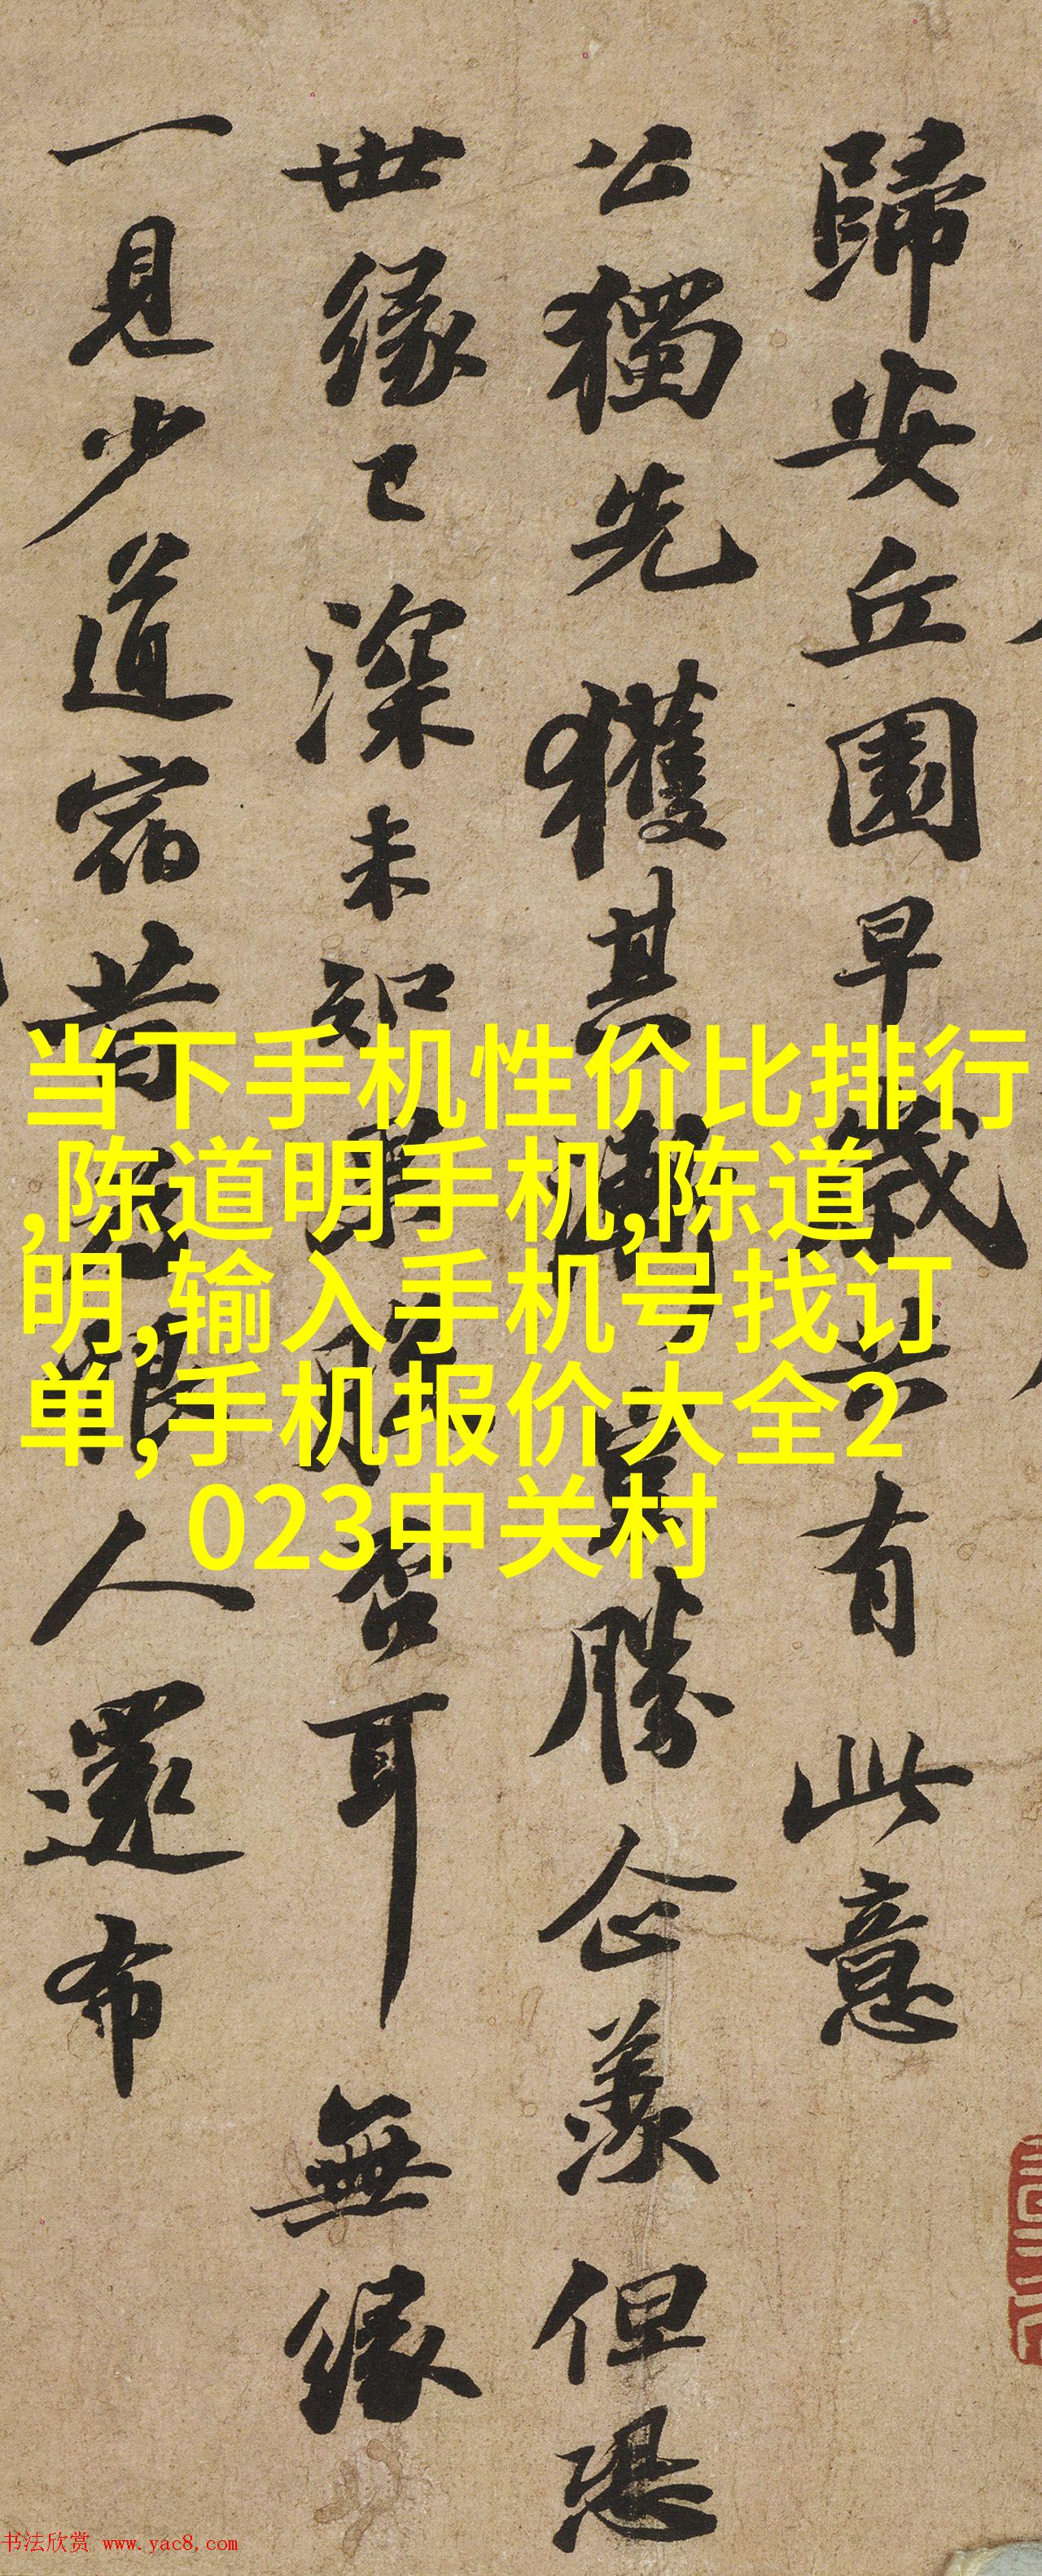 歸安丘園早歲共有此意
公獨先獲其漸豈勝企羨但恐
世緣已深未知果脫否耳無緣
一見少道宿昔為恨人還布
当下手机性价比排行
,陈道明手机,陈道
明,输入手机号找订
单,手机报价大全2
023中关村
书法欣赏 www.yac8.com